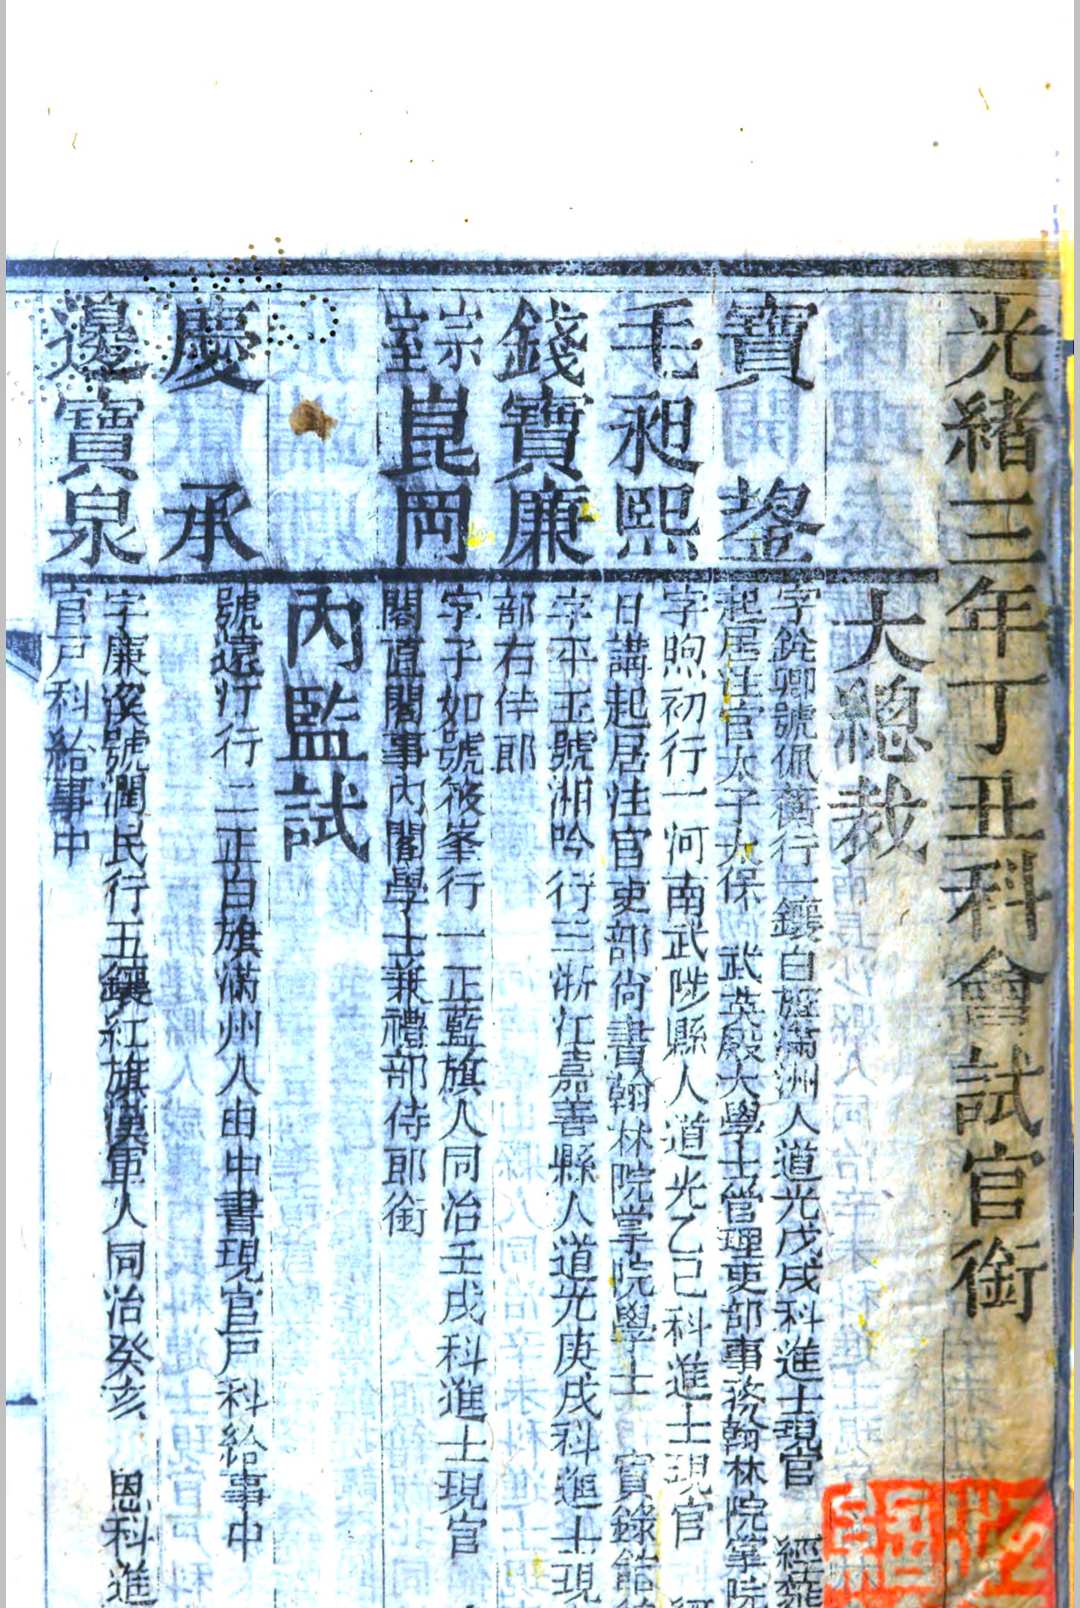 光緒三年丁丑科會試官銜
大總裁
寶鋆
字銳卿號佩蘅行一鑲白旗滿洲人道光戊戌科進士現官 經筵
起居注官太子太保 武英殿大學士管理吏部事務翰林院掌院
毛昶熙
字煦初行一河南武陟縣人道光乙巳科進士現官 經
日講起居注官吏部尚書翰林院掌院學士 實錄館
錢寶廉
字平玉號湘吟行三浙江嘉善縣人道光庚戌科進士現
部右侍郎
宗室崑岡
字子如號筱峯行一正藍旗人同治壬戌科進士現官
閣直閣事內閣學士兼禮部侍郎銜
內監試
慶承
號遠行行二正白旗滿州人由中書現官戶科給事中
邊寶泉
字廉溪號潤民行五鑲紅旗漢軍人同治癸亥 恩科進
官戶科給事中